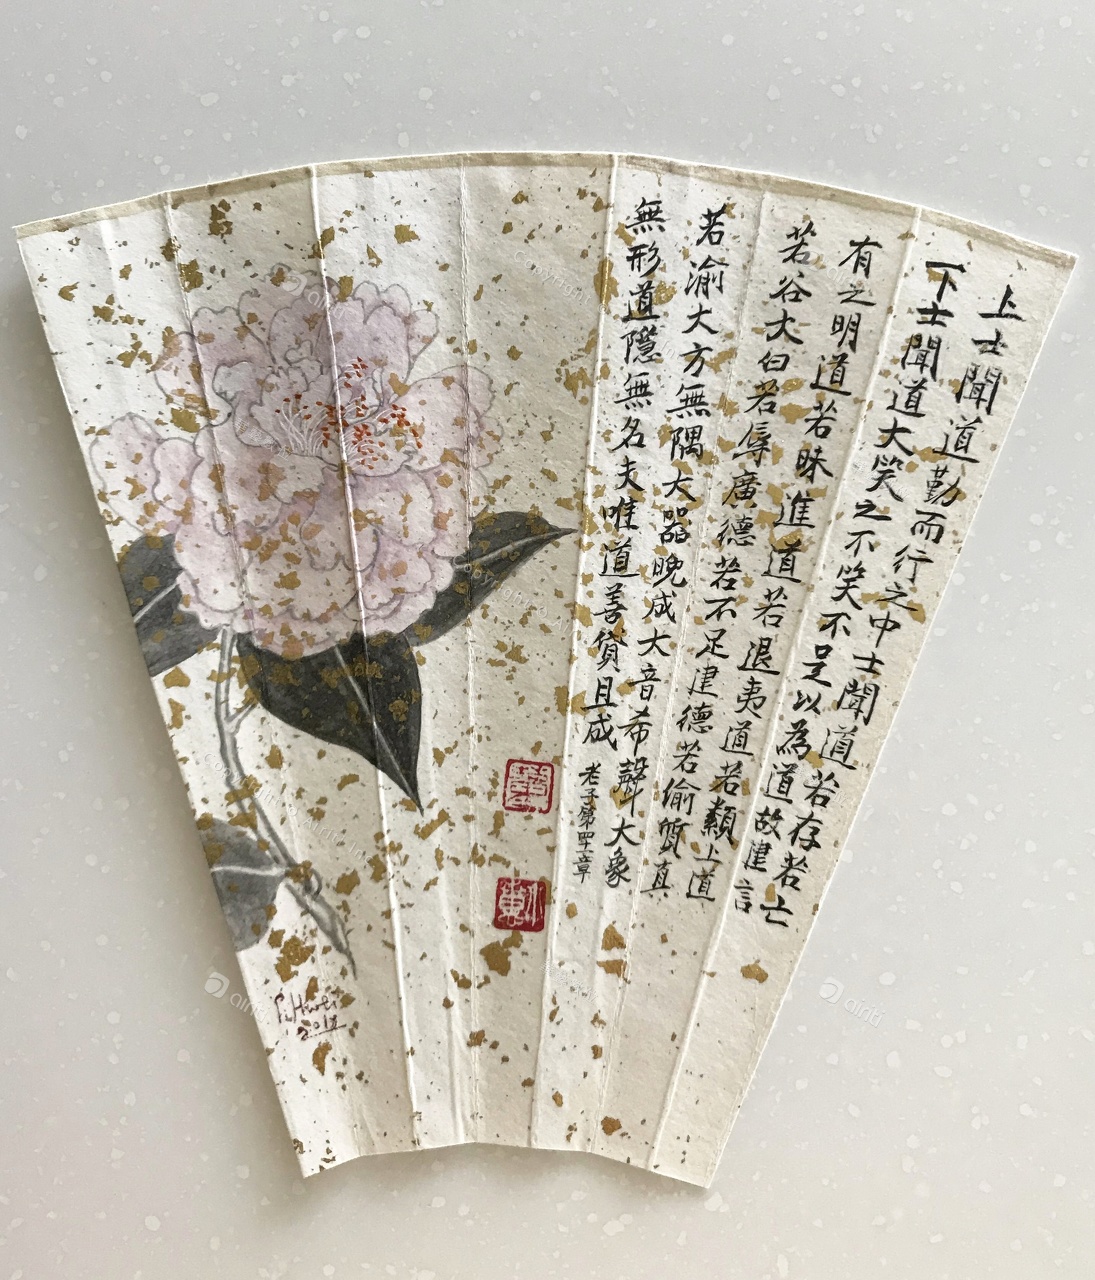 上士聞道勤而行之中士聞道若存若亡
下士聞道大笑之不笑不足以為道故建言
有之明道若昧進道若退夷道若纇上道
若谷大白若辱廣德若不足建德若偷質真
若渝大方無隅大器晚成大音希聲大象
無形道隱無名夫唯道善貸且成
老子第四十一章
airiti
airiti